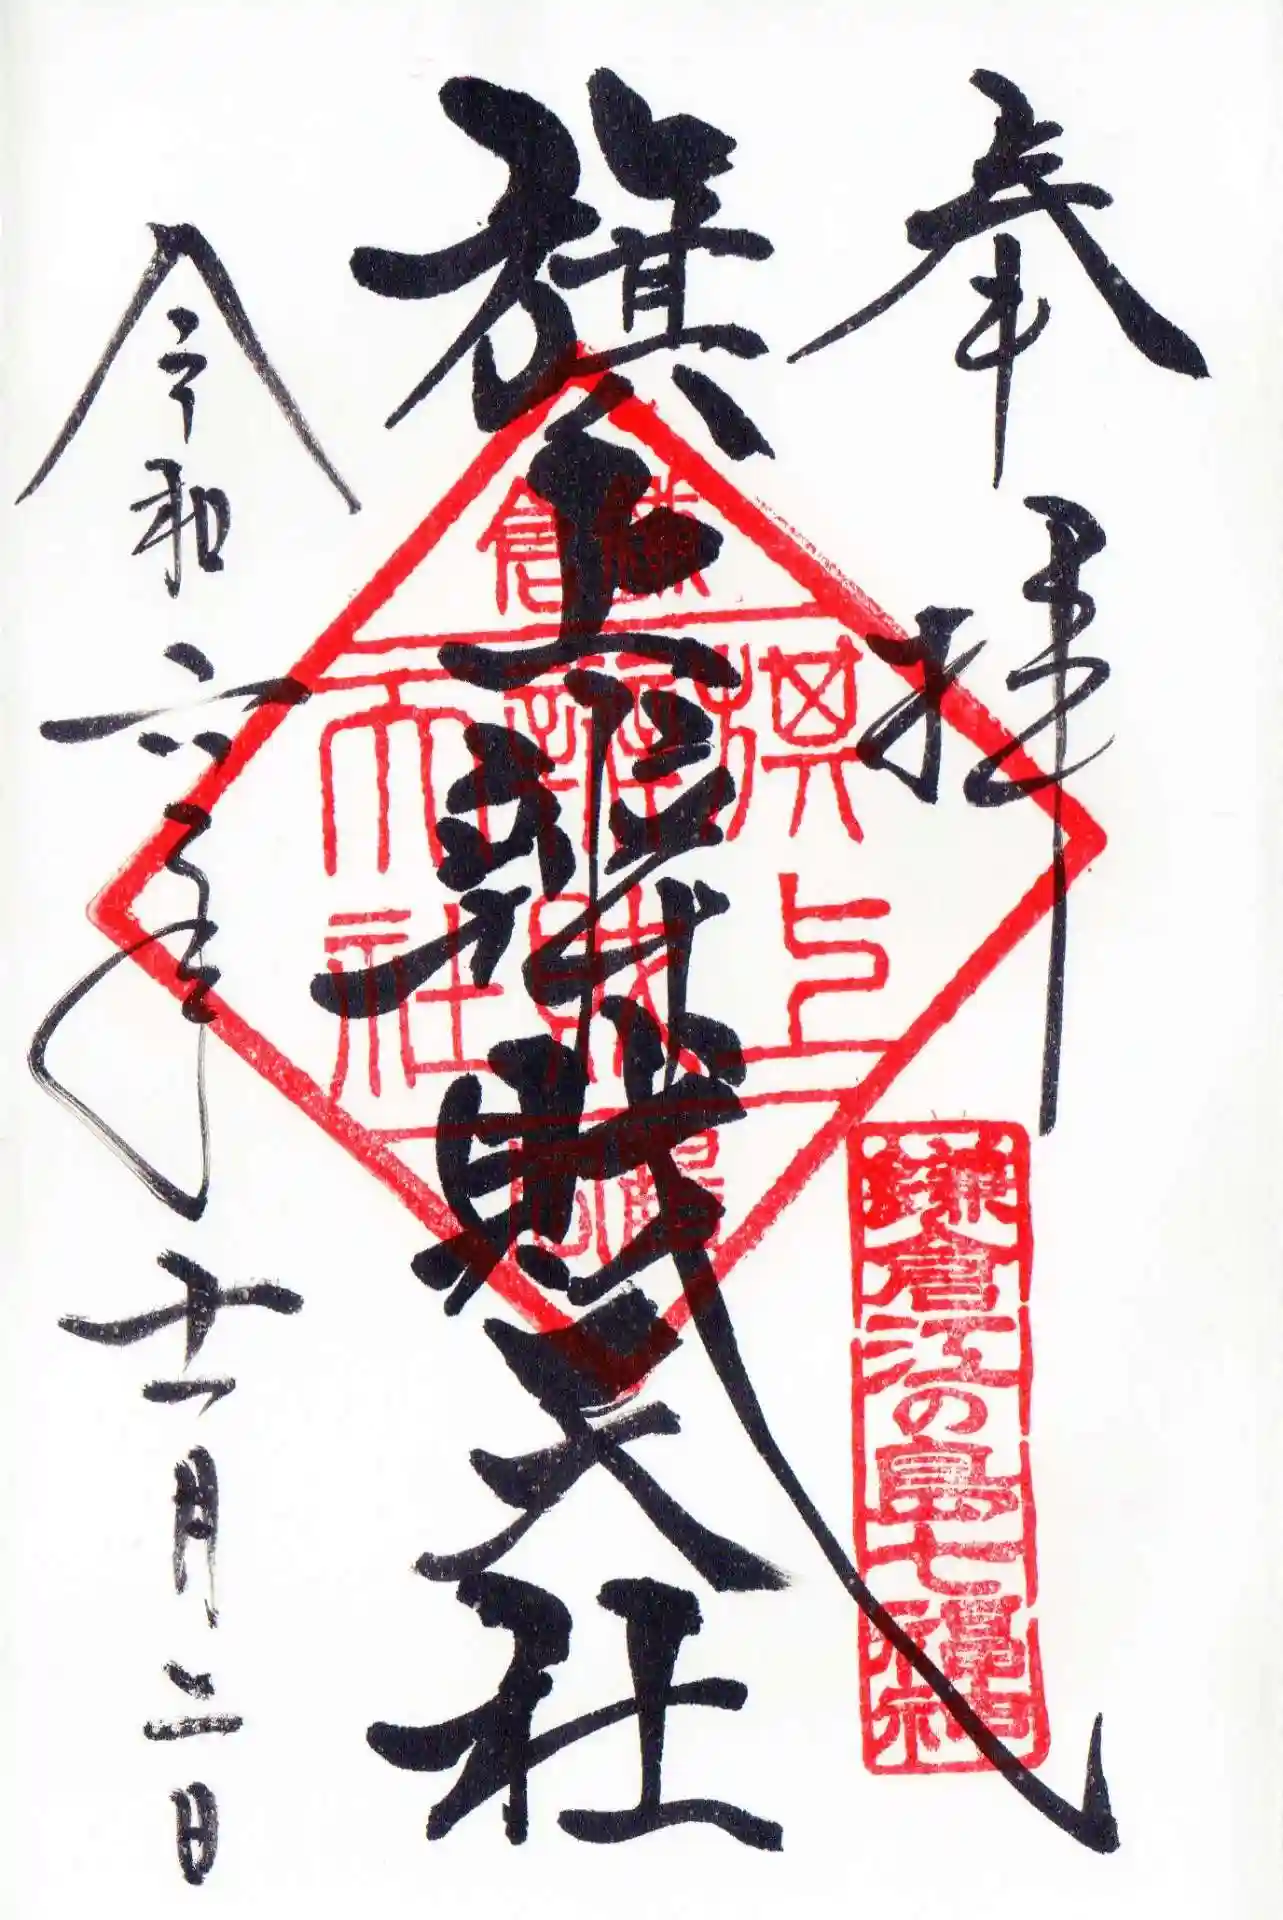 奉拝
鎌倉江の島七福神
旗上辯財天社
鎌倉
旗上
辯財
天社
令和六年十一月二日